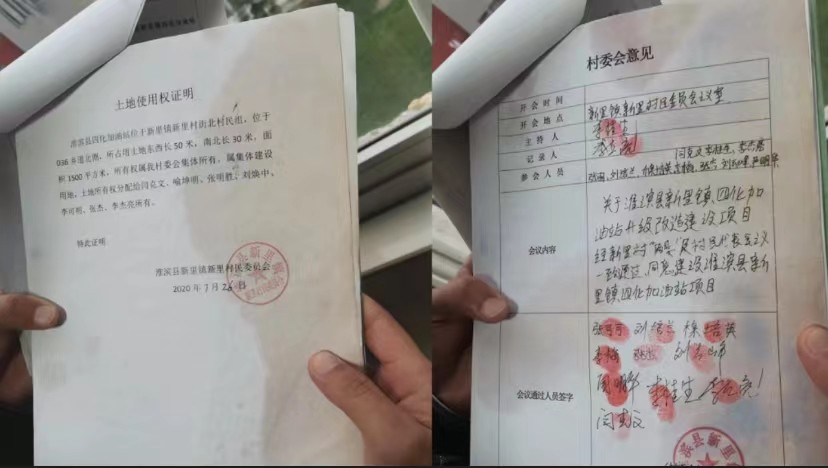 土地使用权证明
淮滨县四化加油站位于新里镇新里村街北村民组，位于
036 乡道北侧，所占用土地东西长 50 米，南北长 30 米，面
积 1500 平方米，所有权属我村委会集体所有，属集体建设
用地，土地所有权分配给闫克文、喻坤明、张明胜、刘焕中、
李司明、张杰、李杰亮所有。
特此证明
淮滨县新里镇新里村民委员会
2020 年 7 月 26 日
村委会意见
开会时间
开会地点
新里镇新里村民委员会会议室
主持人
李桂生
记录人
参会人员
会议内容
关于淮滨县新里镇四化加
油站升级改造建设项目
经新里村"两委"及村民代表会议
一致通过，同意建设淮滨县新
里镇四化加油站项目
会议通过人员签字
李梅
周鹏
李桂生
闫克文
滨县新里